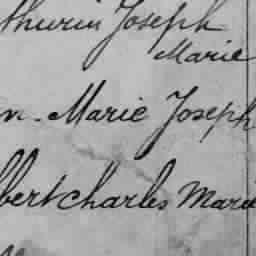 thurin Joseph
Marie
n. Marie Joseph
bert Charles Marie